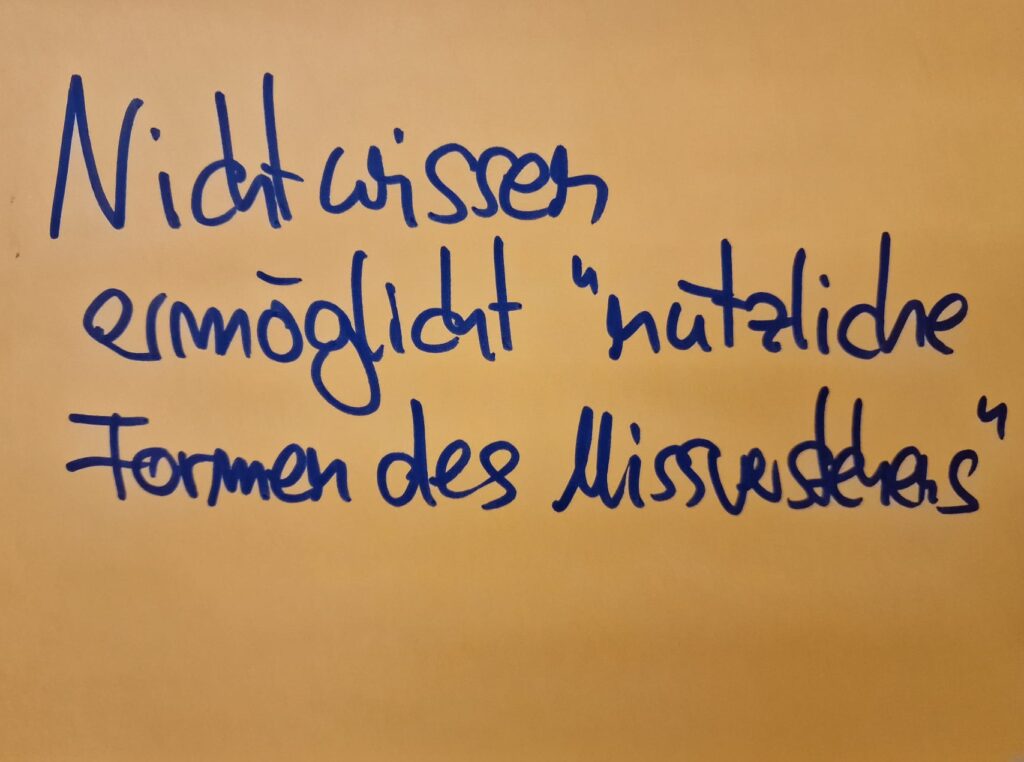 Nichtwissen
ermöglicht "nützliche
Formen des Missverstehens"